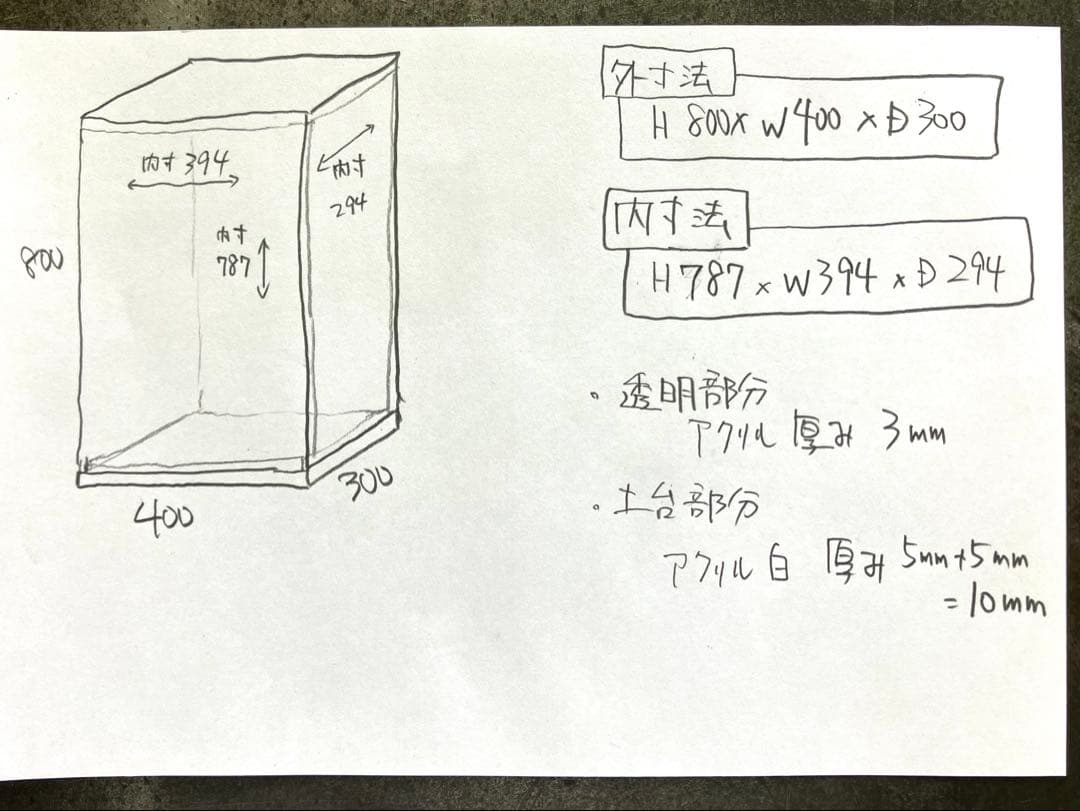 外寸法
H 800 x W 400 x D 300
内寸法
H 787 x W 394 x D 294
内寸 394
内寸
294
内寸
787
800
400
300
・透明部分
アクリル 厚み 3mm
・土台部分
アクリル 白 厚み 5mm+5mm
=10mm